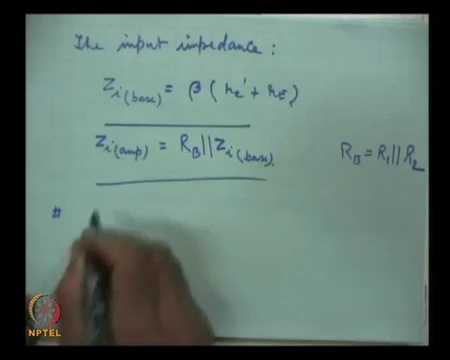 The input impedance:
Zi(base) = β (re' + rE)
Zi(amp) = RB || Zi(base).
RB = R1 || R2
#
NPTEL